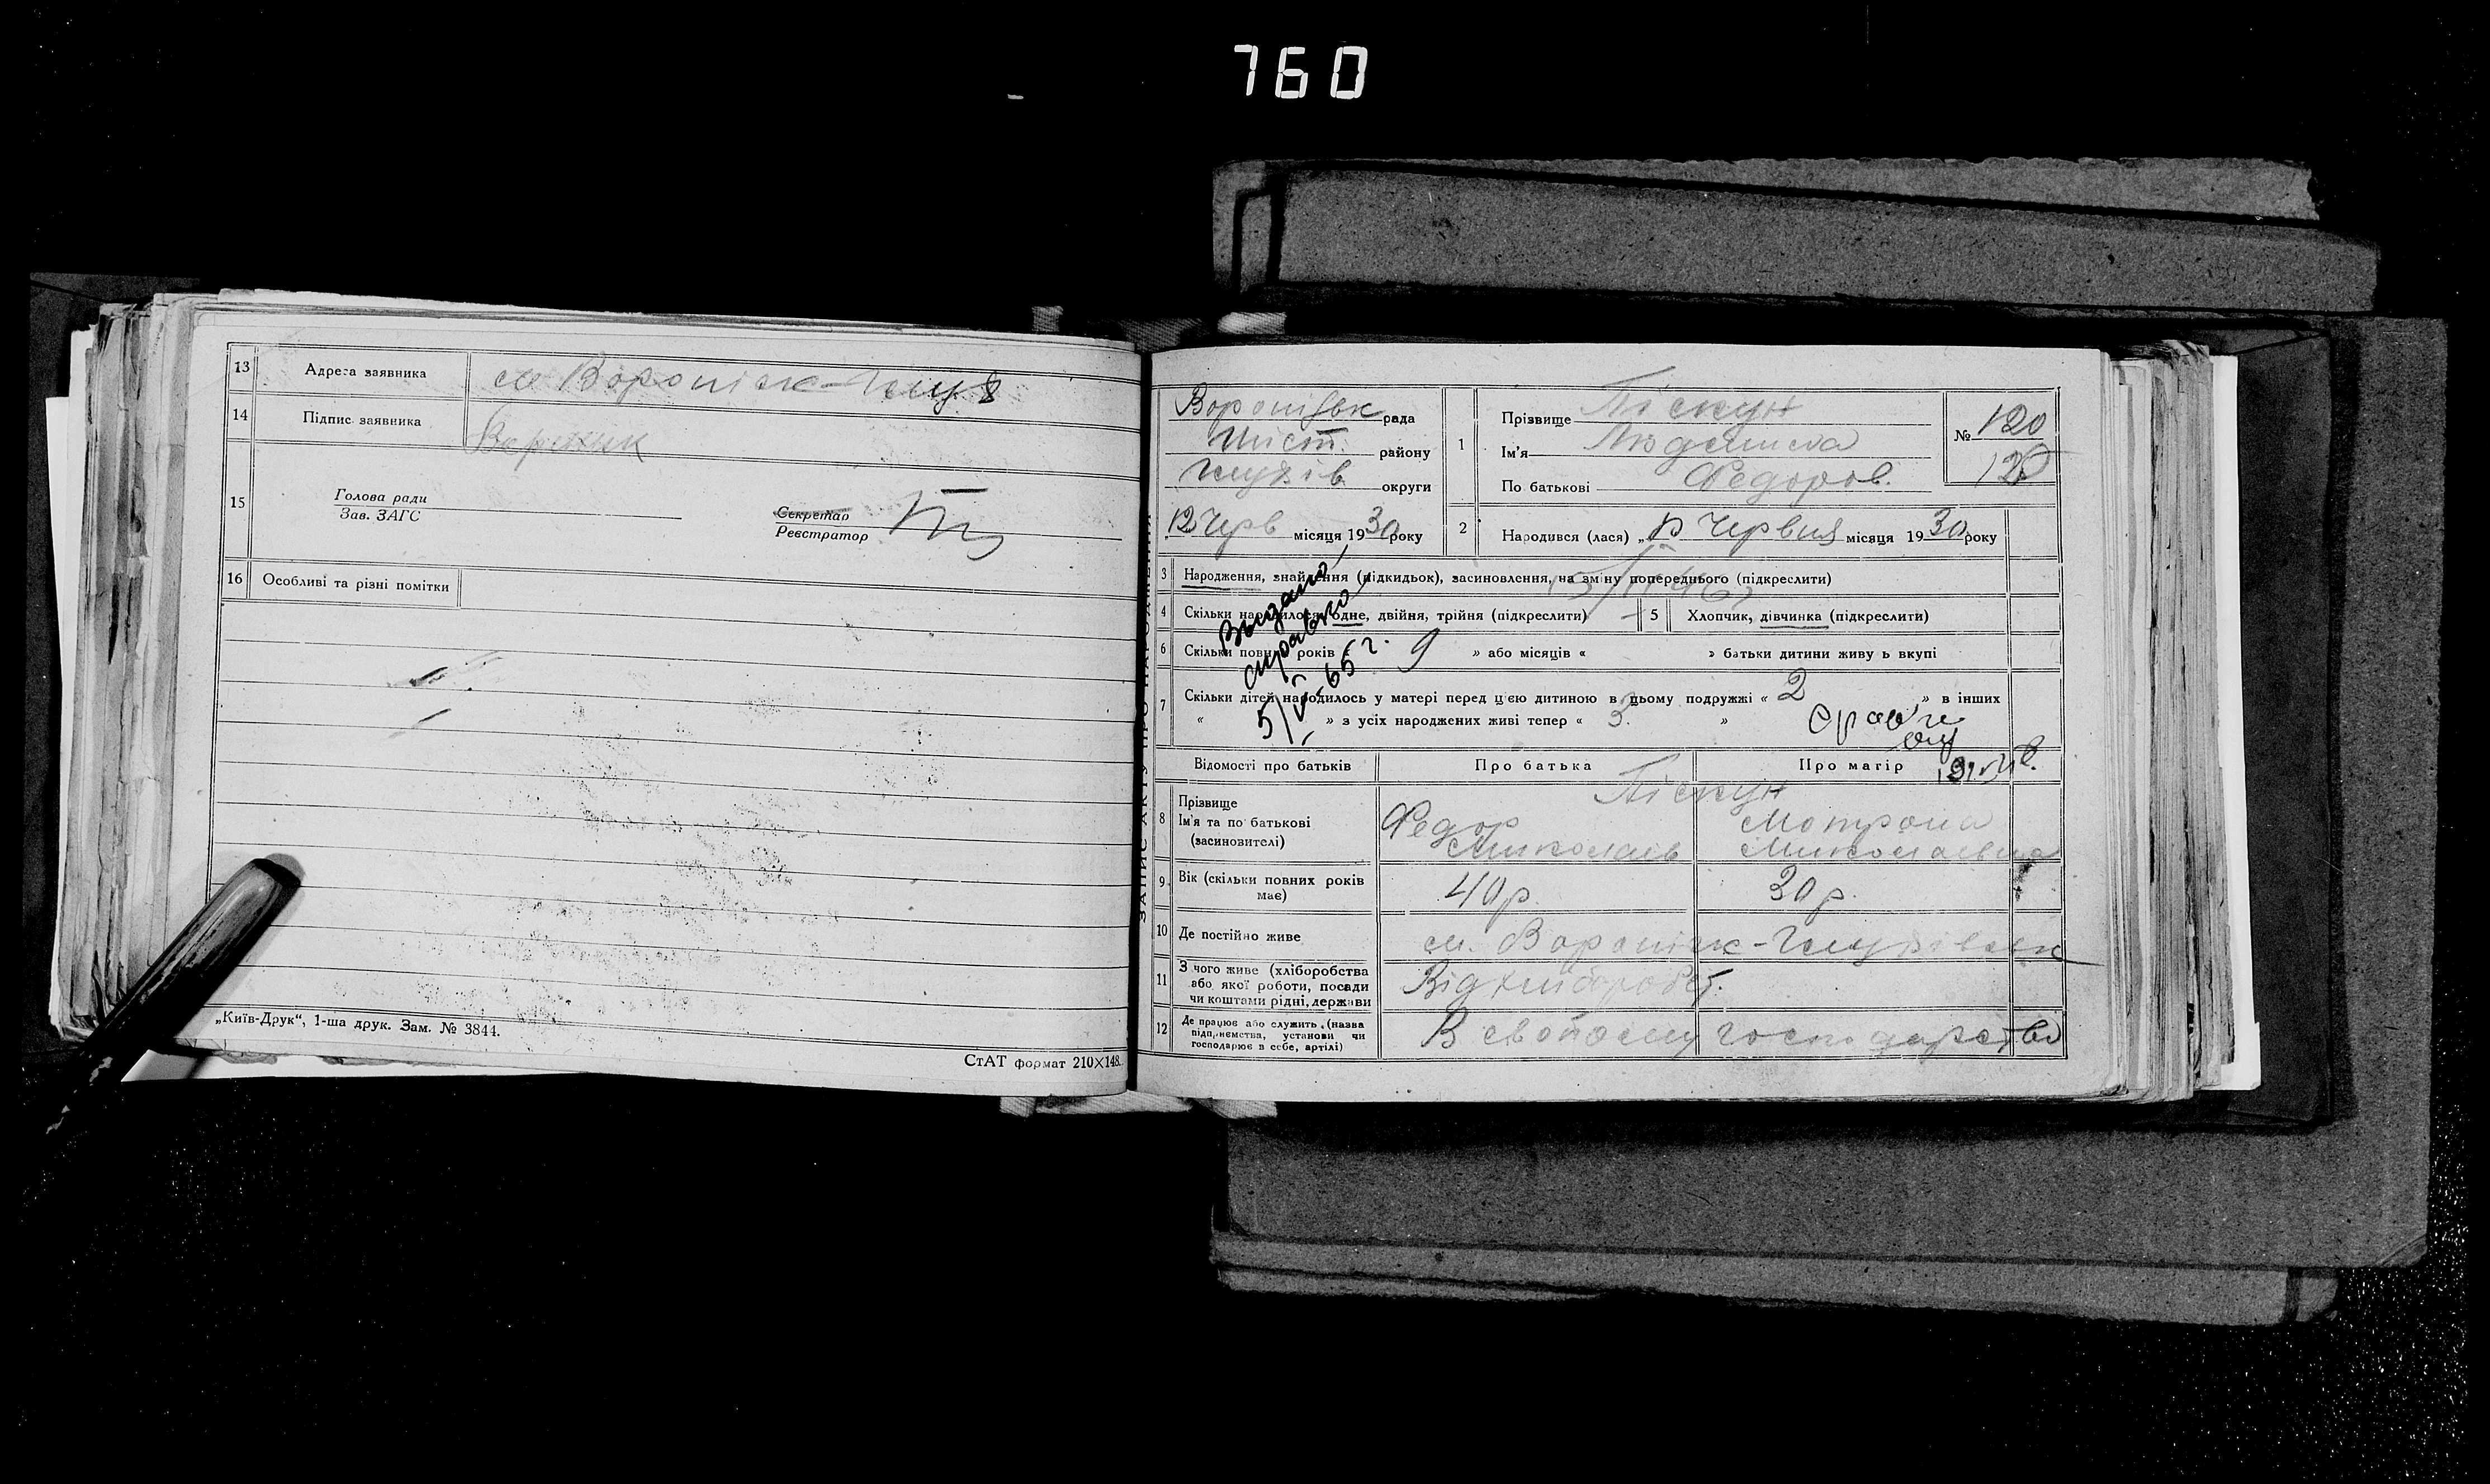 760
13 Адреса заявника м Вороніж-Глух
14 Підпис заявника
15 Голова ради
Зав. ЗАГС
Секретар
Реєстратор
16 Особливі та різні помітки
„Київ-Друк“, 1-ша друк. Зам. № 3844.
СтАТ формат 210×148.
ЗАПИС АКТУ ПРО НАРОДЖЕННЯ
Вороніжськ рада
Міст. району
Глухів округи
12 Черв місяця 1930 року
1 Прізвище Піскун
Ім'я Людмила
По батькові Федоров.
№ 120
120
2 Народився (лася) „ Червня місяця 1930 року
3 Народження, знайдення (підкидьок), засиновлення, на зміну попереднього (підкреслити)
4 Скільки народилося: одне, двійня, трійня (підкреслити)
5 Хлопчик, дівчинка (підкреслити)
6 Скільки повних років « 9 » або місяців « » батьки дитини живуть вкупі
7 Скільки дітей народилось у матері перед цією дитиною в цьому подружжі « 2 » в інших
« » з усіх народжених живі тепер « 3. »
Выдано
справко
5/V-65 г.
Відомості про батьків
Про батька
Про матір
8 Прізвище
Ім'я та по батькові
(засиновителі)
Піскун
Федор
Миколаїв
Мотрона
Миколаївна
9 Вік (скільки повних років
має)
40 р.
30 р.
10 Де постійно живе
м. Вороніж-Глухівськ
11 З чого живе (хліборобства
або якої роботи, посади
чи коштами рідні, держави
Від хліборобст.
12 Де працює або служить (назва
підприємства, установи чи
господарює в себе, артілі)
В свойому господарстві